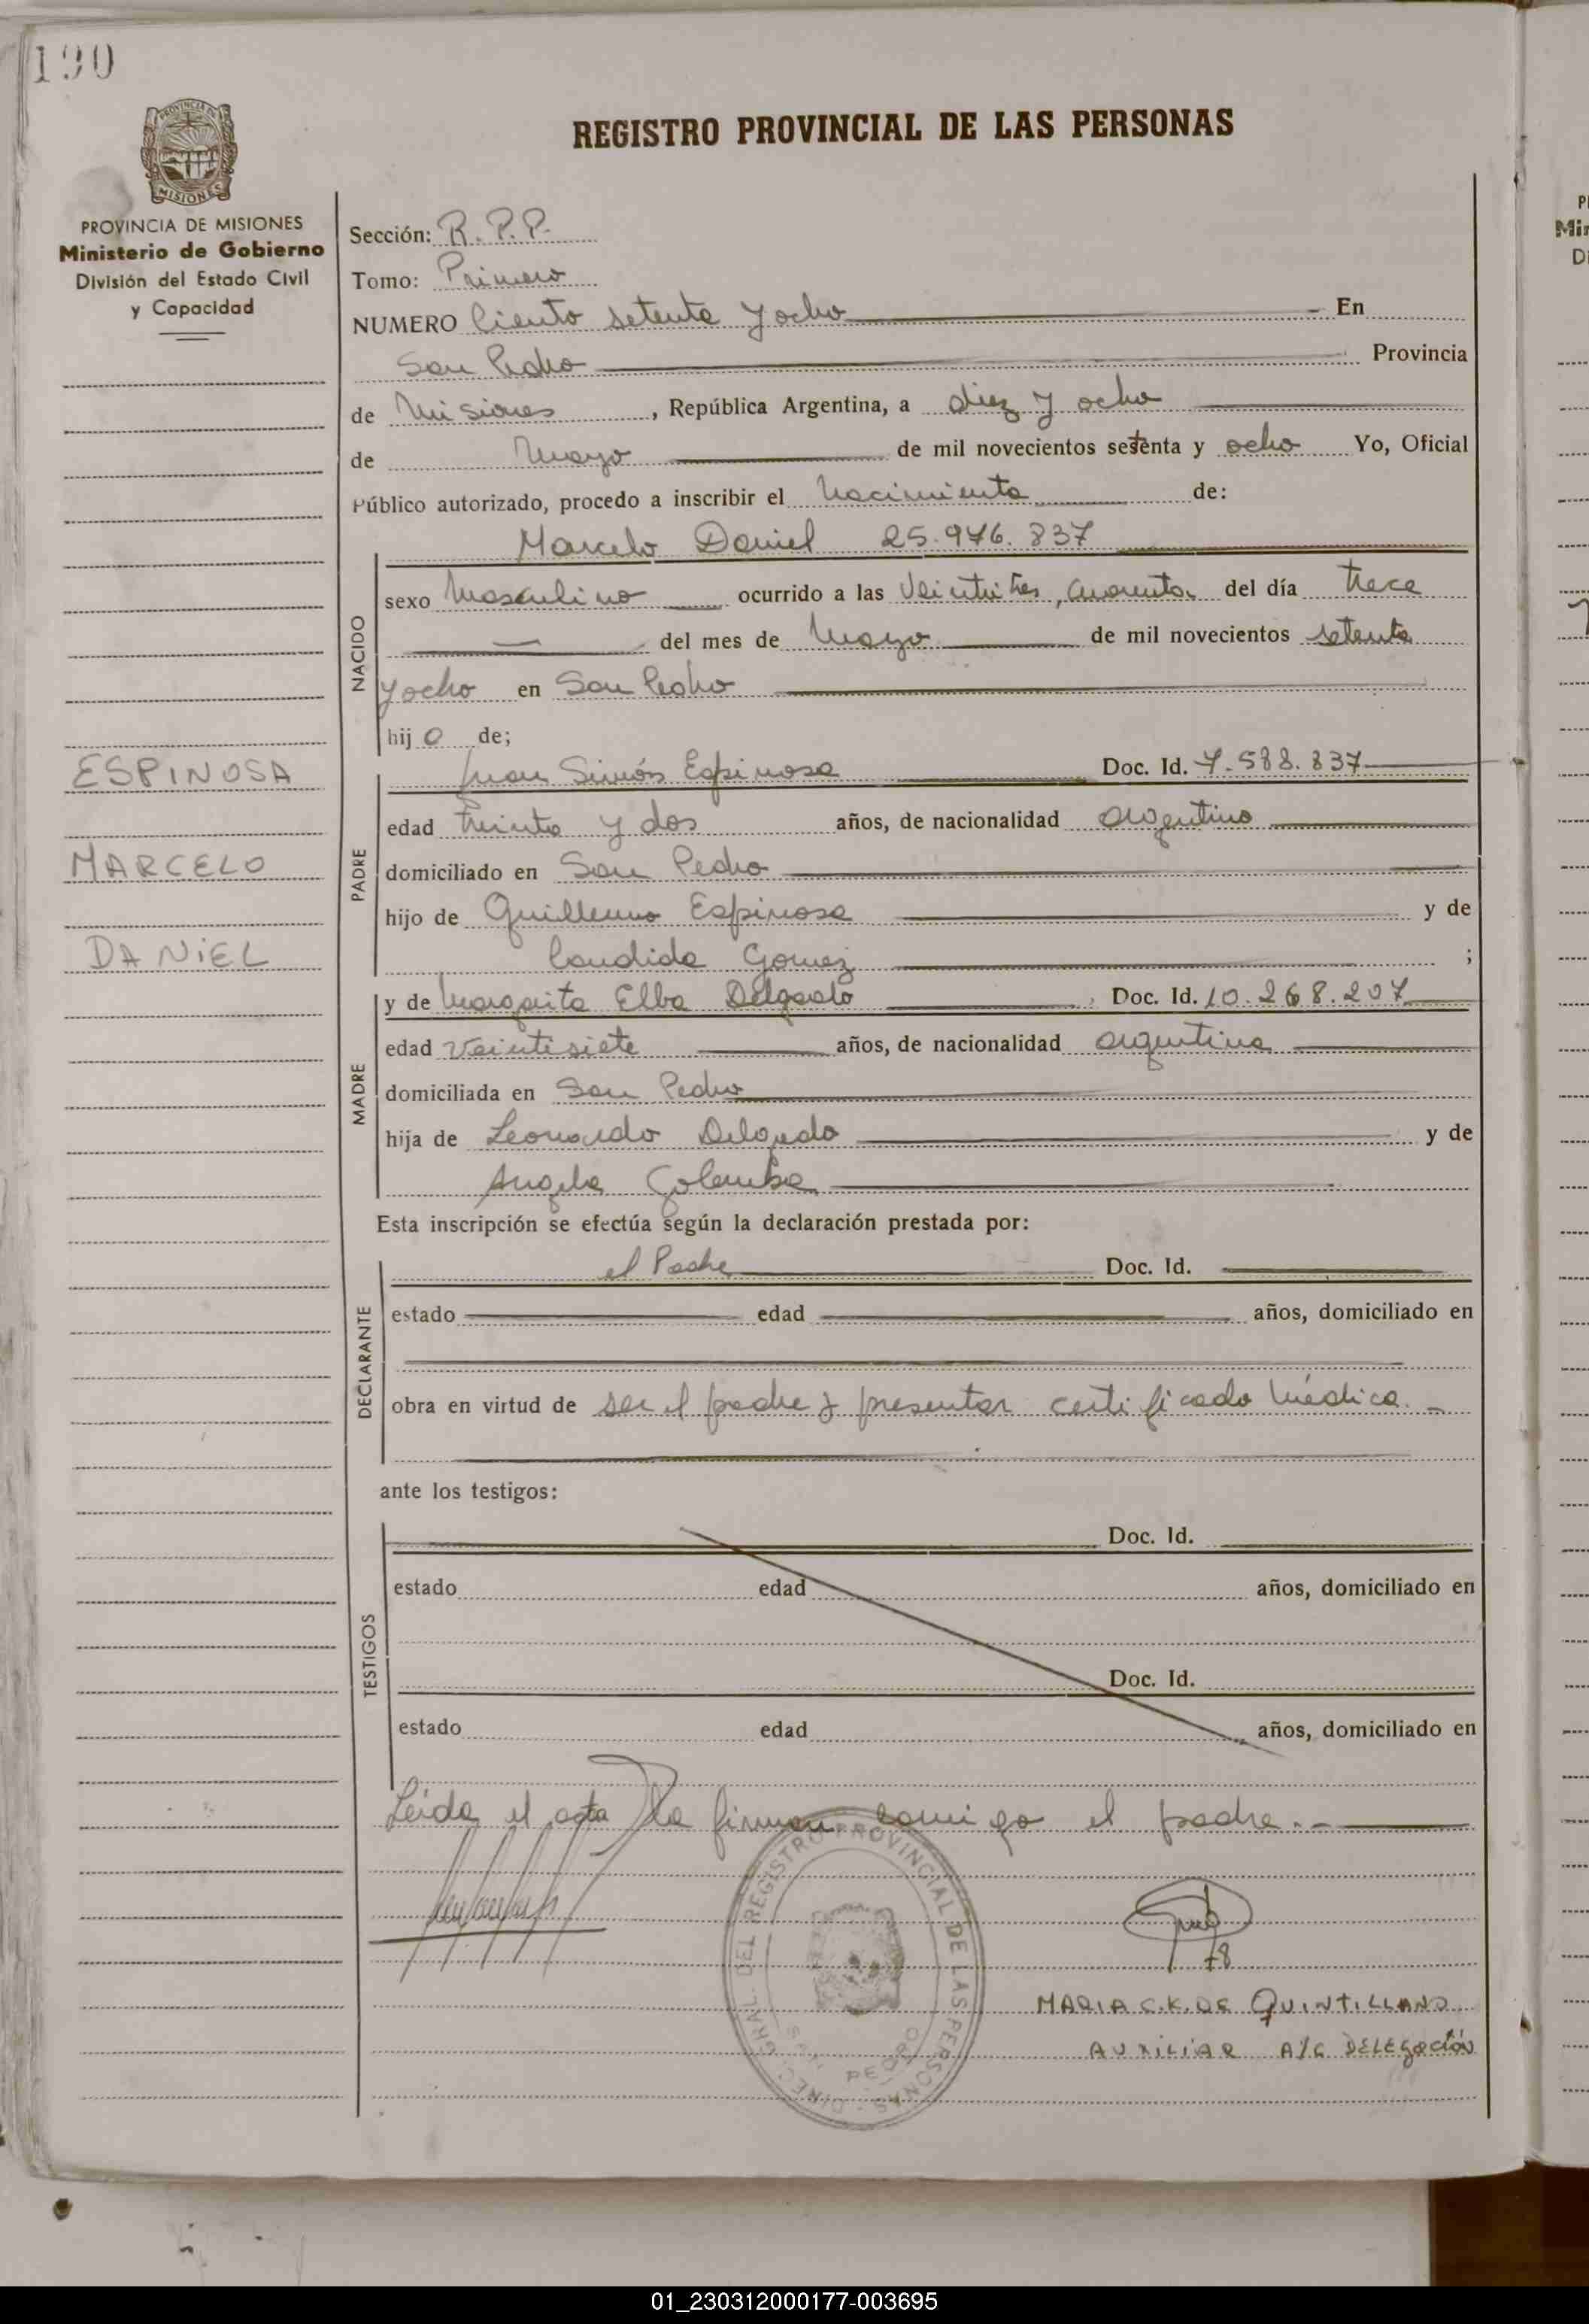 190
PROVINCIA DE MISIONES
REGISTRO PROVINCIAL DE LAS PERSONAS
PROVINCIA DE MISIONES
Ministerio de Gobierno
División del Estado Civil
y Capacidad
Sección: R.P.P.
Tomo: Primero
NUMERO Ciento setenta y ocho En
San Pedro Provincia
de Misiones, República Argentina, a diez y ocho
de Mayo de mil novecientos setenta y ocho Yo, Oficial
Público autorizado, procedo a inscribir el Nacimiento de:
Marcelo Daniel 25.976.837
NACIDO
sexo Masculino ocurrido a las Veintitres, cuarenta del día trece
del mes de Mayo de mil novecientos setenta
y ocho en San Pedro
hijo de;
ESPINOSA
MARCELO
DANIEL
PADRE
Juan Simón Espinosa Doc. Id. 7.588.837
edad treinta y dos años, de nacionalidad argentino
domiciliado en San Pedro
hijo de Guillermo Espinosa y de
Candida Gomez ;
MADRE
y de Margarita Elba Delgado, Doc. Id. 10.268.207
edad Veintisiete años, de nacionalidad argentina
domiciliada en San Pedro
hija de Leonardo Delgado y de
Angela
Esta inscripción se efectúa según la declaración prestada por:
DECLARANTE
el Padre Doc. Id.
estado edad años, domiciliado en
obra en virtud de ser el padre y presentar certificado médico.-
ante los testigos:
TESTIGOS
Doc. Id.
estado edad años, domiciliado en
Doc. Id.
estado edad años, domiciliado en
Leida el acta la firman conmigo el padre.-
DIREC. GRAL. DEL REGISTRO PROVINCIAL DE LAS PERSONAS
SAN PEDRO
78
MARIA C.K. DE QUINTILLANO
AUXILIAR A/C DELEGACIÓN
01_230312000177-003695